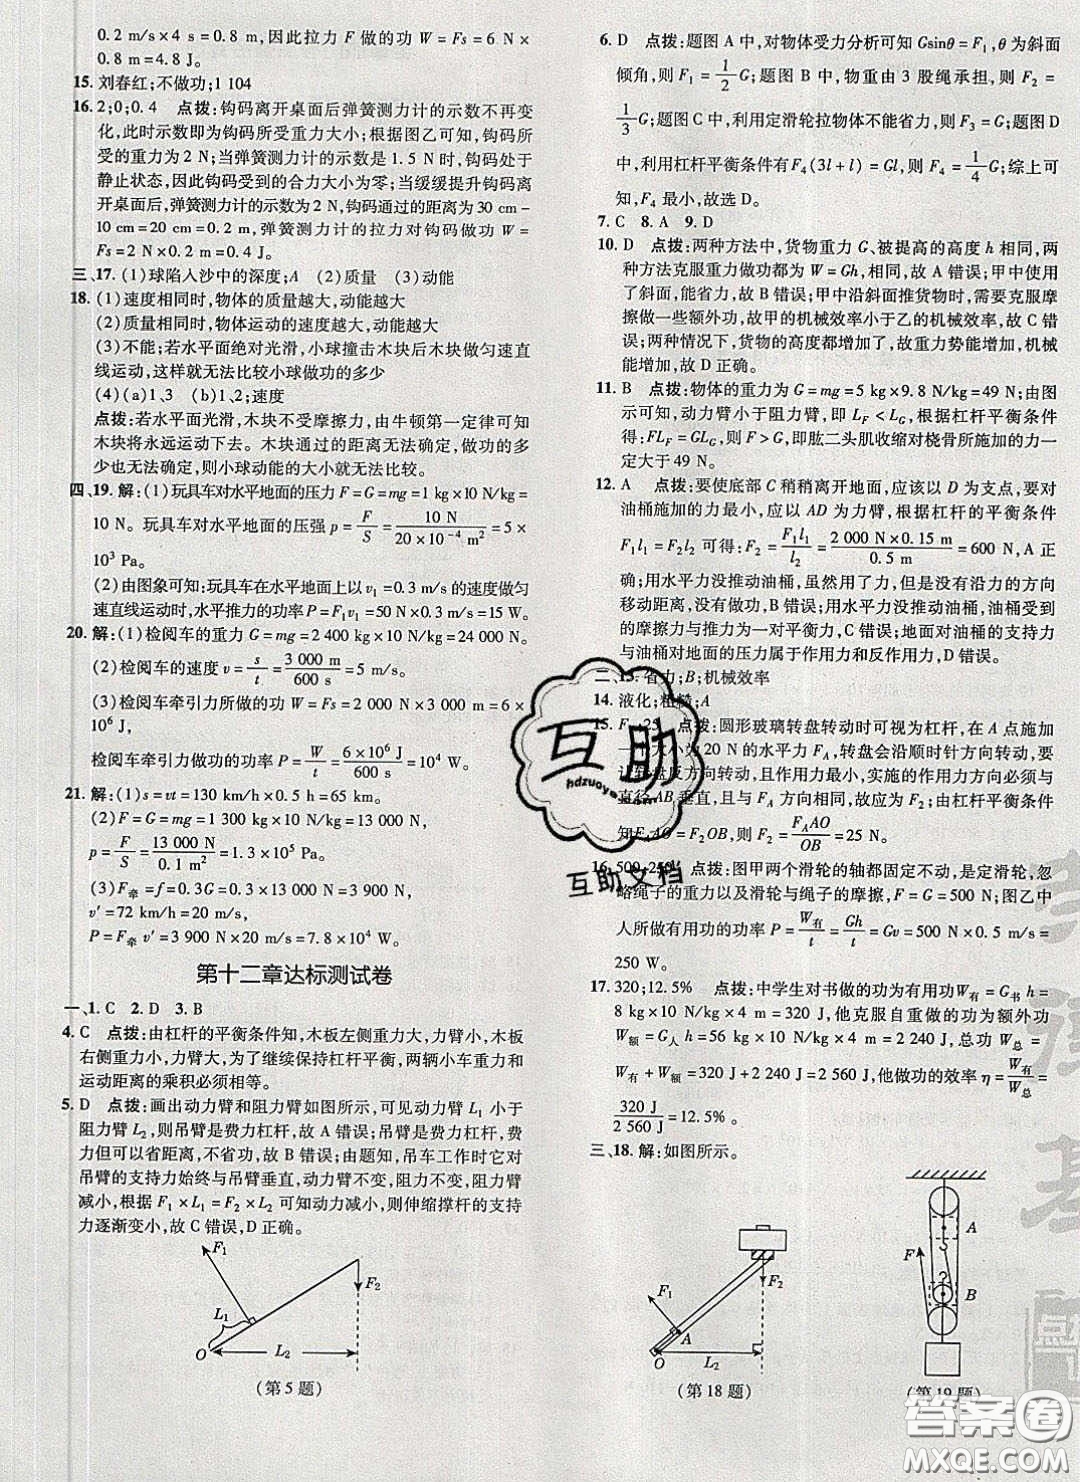 0.2 m/s×4 s=0.8 m,因此拉力 F 做的功 W=Fs=6 N×
0.8 m=4.8 J。
15. 刘春红;不做功;1 104
16. 2;0;0.4 点拨:钩码离开桌面后弹簧测力计的示数不再变
化,此时示数即为钩码所受重力大小;根据图乙可知,钩码所
受的重力为 2 N;当弹簧测力计的示数是 1.5 N时,钩码处于
静止状态,因此钩码受到的合力大小为零;当缓缓提升钩码离
开桌面后,弹簧测力计的示数为2 N,钩码通过的距离为30 cm-
10 cm=20 cm=0.2 m,弹簧测力计的拉力对钩码做功 W=
Fs=2 N×0.2 m=0.4 J。
三、17. (1)球陷入沙中的深度;A (2)质量 (3)动能
18. (1)速度相同时,物体的质量越大,动能越大
(2)质量相同时,物体运动的速度越大,动能越大
(3)不能;若水平面光滑,小球撞击木块后木块做匀速直
线运动,这样就无法比较小球做功的多少
(4)(a)1、3 (b)1、2;速度
点拨:若水平面光滑,木块不受摩擦力,由牛顿第一定律可知
木块将永远运动下去。木块通过的距离无法确定,做功的多
少也无法确定,则小球动能的大小就无法比较。
四、19. 解:(1)玩具车对水平地面的压力 F=G=mg=1 kg×10 N/kg=
10 N。玩具车对水平地面的压强 p=F/S=10 N/(20×10⁻⁴ m²)=5×
10³ Pa。
(2)由图象可知:玩具车在水平地面上以 v₁=0.3 m/s 的速度做匀
速直线运动时,水平推力的功率 P=F₁v₁=50 N×0.3 m/s=15 W。
20. 解:(1)检阅车的重力 G=mg=2 400 kg×10 N/kg=24 000 N。
(2)检阅车的速度 v=s/t=3 000 m/600 s=5 m/s。
(3)检阅车牵引力所做的功 W=Fs=2 000 N×3 000 m=6×
10⁶ J,
检阅车牵引力做功的功率 P=W/t=6×10⁶ J/600 s=10⁴ W。
21. 解:(1)s=vt=130 km/h×0.5 h=65 km。
(2)F=G=mg=1 300 kg×10 N/kg=13 000 N,
p=F/S=13 000 N/0.1 m²=1.3×10⁵ Pa。
(3)F牵=f=0.3G=0.3×13 000 N=3 900 N,
v′=72 km/h=20 m/s,
P=F牵 v′=3 900 N×20 m/s=7.8×10⁴ W。
第十二章达标测试卷
一、1. C 2. D 3. B
4. C 点拨:由杠杆的平衡条件知,木板左侧重力大,力臂小,木板
右侧重力小,力臂大,为了继续保持杠杆平衡,两辆小车重力和
运动距离的乘积必须相等。
5. D 点拨:画出动力臂和阻力臂如图所示,可见动力臂 L₁ 小于
阻力臂 L₂,则吊臂是费力杠杆,故 A 错误;吊臂是费力杠杆,费
力但可以省距离,不省功,故 B 错误;由题知,吊车工作时它对
吊臂的支持力始终与吊臂垂直,动力臂不变,阻力不变,阻力臂
减小,根据 F₁×L₁=F₂×L₂ 可知动力减小,则伸缩撑杆的支持
力逐渐变小,故 C 错误,D 正确。
F₁
F₂
L₁
O
L₂
(第 5 题)
6. D 点拨:题图 A 中,对物体受力分析可知 Gsinθ=F₁,θ 为斜面
倾角,F₁=1/2 G;题图 B 中,物重由 3 股绳承担,则 F₂=
1/3 G;题图 C 中,利用定滑轮拉物体不能省力,则 F₃=G;题图 D
中,利用杠杆平衡条件有 F₄(3l+l)=Gl,则 F₄=1/4 G;综上可
知,F₄ 最小,故选 D。
7. C 8. A 9. D
10. D 点拨:两种方法中,货物重力 G、被提高的高度 h 相同,两
种方法克服重力做功都为 W=Gh,故 A 错误;甲中使用
了斜面,能省力,故 B 错误;甲中沿斜面推货物时,需要克服摩
擦做一些额外功,故甲的机械效率小于乙的机械效率,故 C 错
误;两种情况下,货物的高度都增加了,故重力势能增加,机械
能增加,故 D 正确。
11. B 点拨:物体的重力为 G=mg=5 kg×9.8 N/kg=49 N;由图
示可知,动力臂小于阻力臂,即 L_F<L_G,根据杠杆平衡条件
得:FL_F=GL_G,则 F>G,即肱二头肌收缩对桡骨所施加的力一
定大于49 N。
12. A 点拨:要使底部 C 稍稍离开地面,应该以 D 为支点,要对
油桶施加的力最小,应以 AD 为力臂,根据杠杆的平衡条件
F₁l₁=F₂l₂ 可得:F₂=F₁l₁/l₂=(2 000 N×0.15 m)/0.5 m=600 N,A 正
确;用水平力没推动油桶,虽然用了力,但是没有沿力的方向
移动距离,没有做功,B 错误;用水平力没推动油桶,油桶受到
的摩擦力与推力为一对平衡力,C 错误;地面对油桶的支持力
与油桶对地面的压力属于作用力和反作用力,D 错误。
二、13. 省力;B;机械效率
14. 液化;粗糙;A
15. 点拨:圆形玻璃转盘转动时可视为杠杆,在 A 点施加
一个大小为20 N 的水平力 F_A,转盘会沿顺时针方向转动,要
让转盘反方向转动,且作用力最小,实施的作用力方向必须与
直径 AB 垂直,且与 F_A 方向相同,故应为 F₂;由杠杆平衡条件
知 F_A AO=F₂OB,则 F₂=F_A AO/OB=25 N。
16. 500;250 点拨:图甲两个滑轮的轴都固定不动,是定滑轮,忽
略绳子的重力以及滑轮与绳子的摩擦,F=G=500 N;图乙中
人所做有用功的功率 P=W有/t=Gh/t=Gv=500 N×0.5 m/s=
250 W。
17. 320;12.5% 点拨:中学生对书做的功为有用功W有=G书 h=
8 kg×10 N/kg×4 m=320 J,他克服自重做的功为额外功
W额=G人 h=56 kg×10 N/kg×4 m=2 240 J,总功 W总=
W有+W额=320 J+2 240 J=2 560 J,他做功的效率 η=W有/W总=
320 J/2 560 J=12.5%。
三、18. 解:如图所示。
F₁
F₂
A
O
L₂
(第 18 题)
A
F
B
(第 19 题)
互助
hdzuoye.com
互助文档
答案圈
MXQE.COM